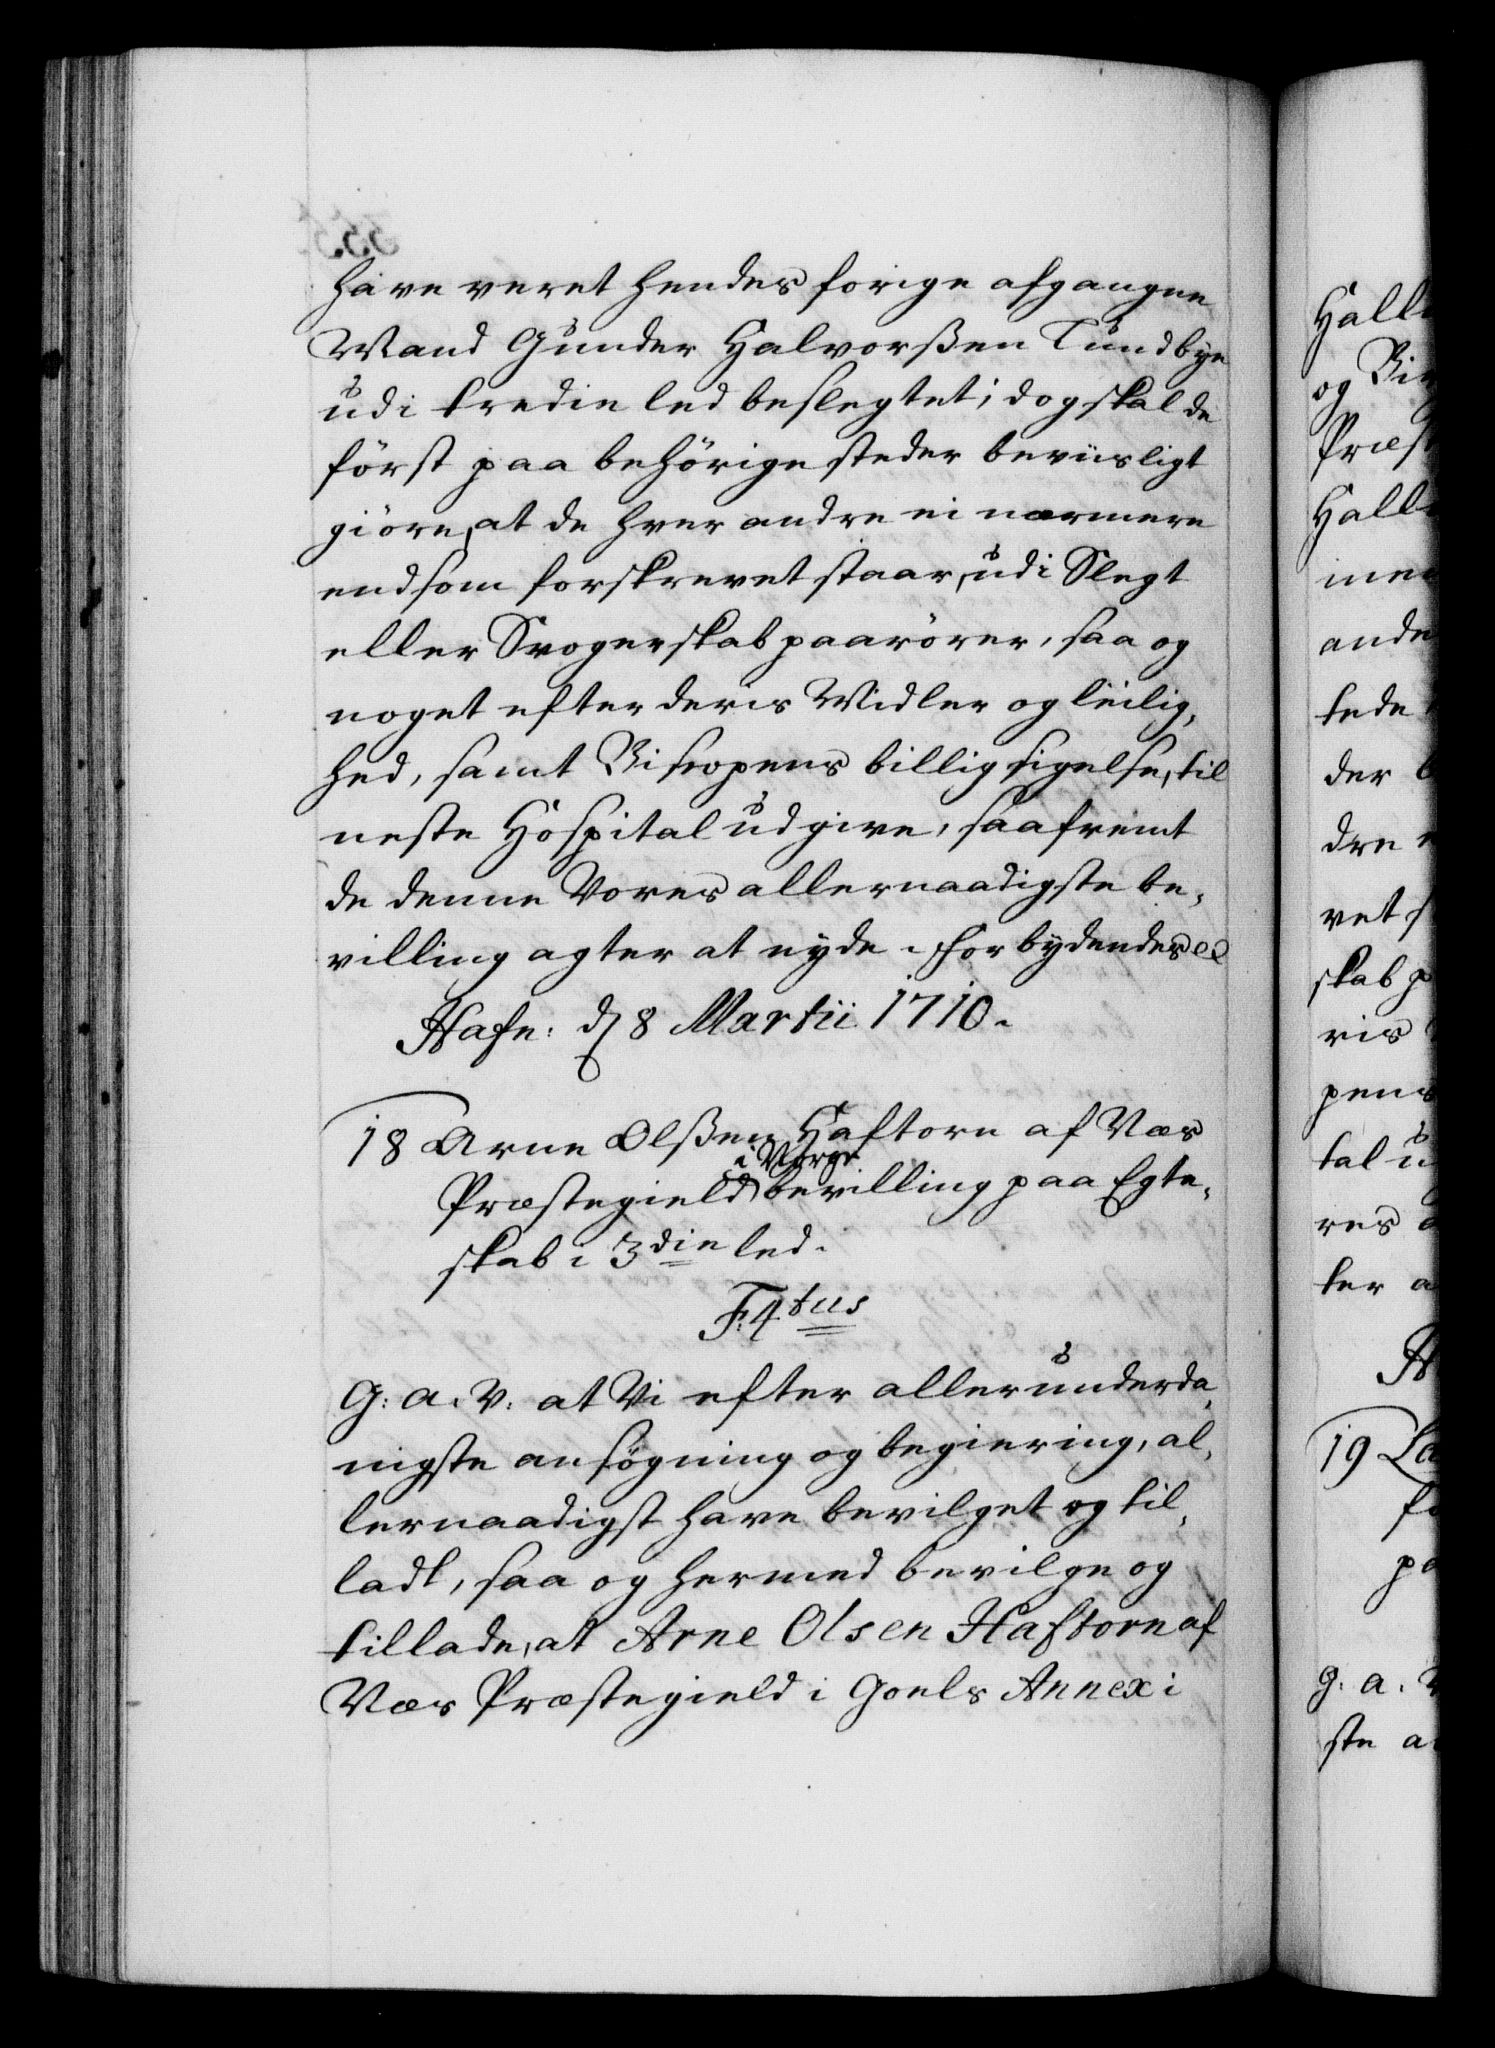 have veret hendes forige afgangne
Mand Gunder Halvorßen Tundbye
udi tredie led beslegtet; dog skal de
först paa behörige steder beviisligt
giöre, at de hver andre ei nærmere
end som forskrevet staar, udi Slegt
eller Svogerskab paarörer, saa og
noget efter deris Midler og leilig,
hed, samt Biscopens billig sigelse, til
neste Hospital udgive, saafremt
de denne Vores allernaadigste be,
villing agter at nyde. Forbydendes ec
Hafn: d 8 Martii 1710.
18 Arne Olßen Haftorn af Næs
i Norge
Præstegield bevilling paa Egte,
skab i 3die led.
F: 4tus
G: a. V: at Vi efter allerunderda,
nigste ansøgning og begiering, al,
lernaadigst have bevilget og til,
ladt, saa og hermed bevilge og
tillade, at Arne Olsen Haftorn af
Næs Præstegield i Goels Annex i
Hall
og
Præst
Hall
men
ande
tede
der b
dre
vet
skab p
ris
pens
tal u
res
ter a
19
g: a. V
ste a